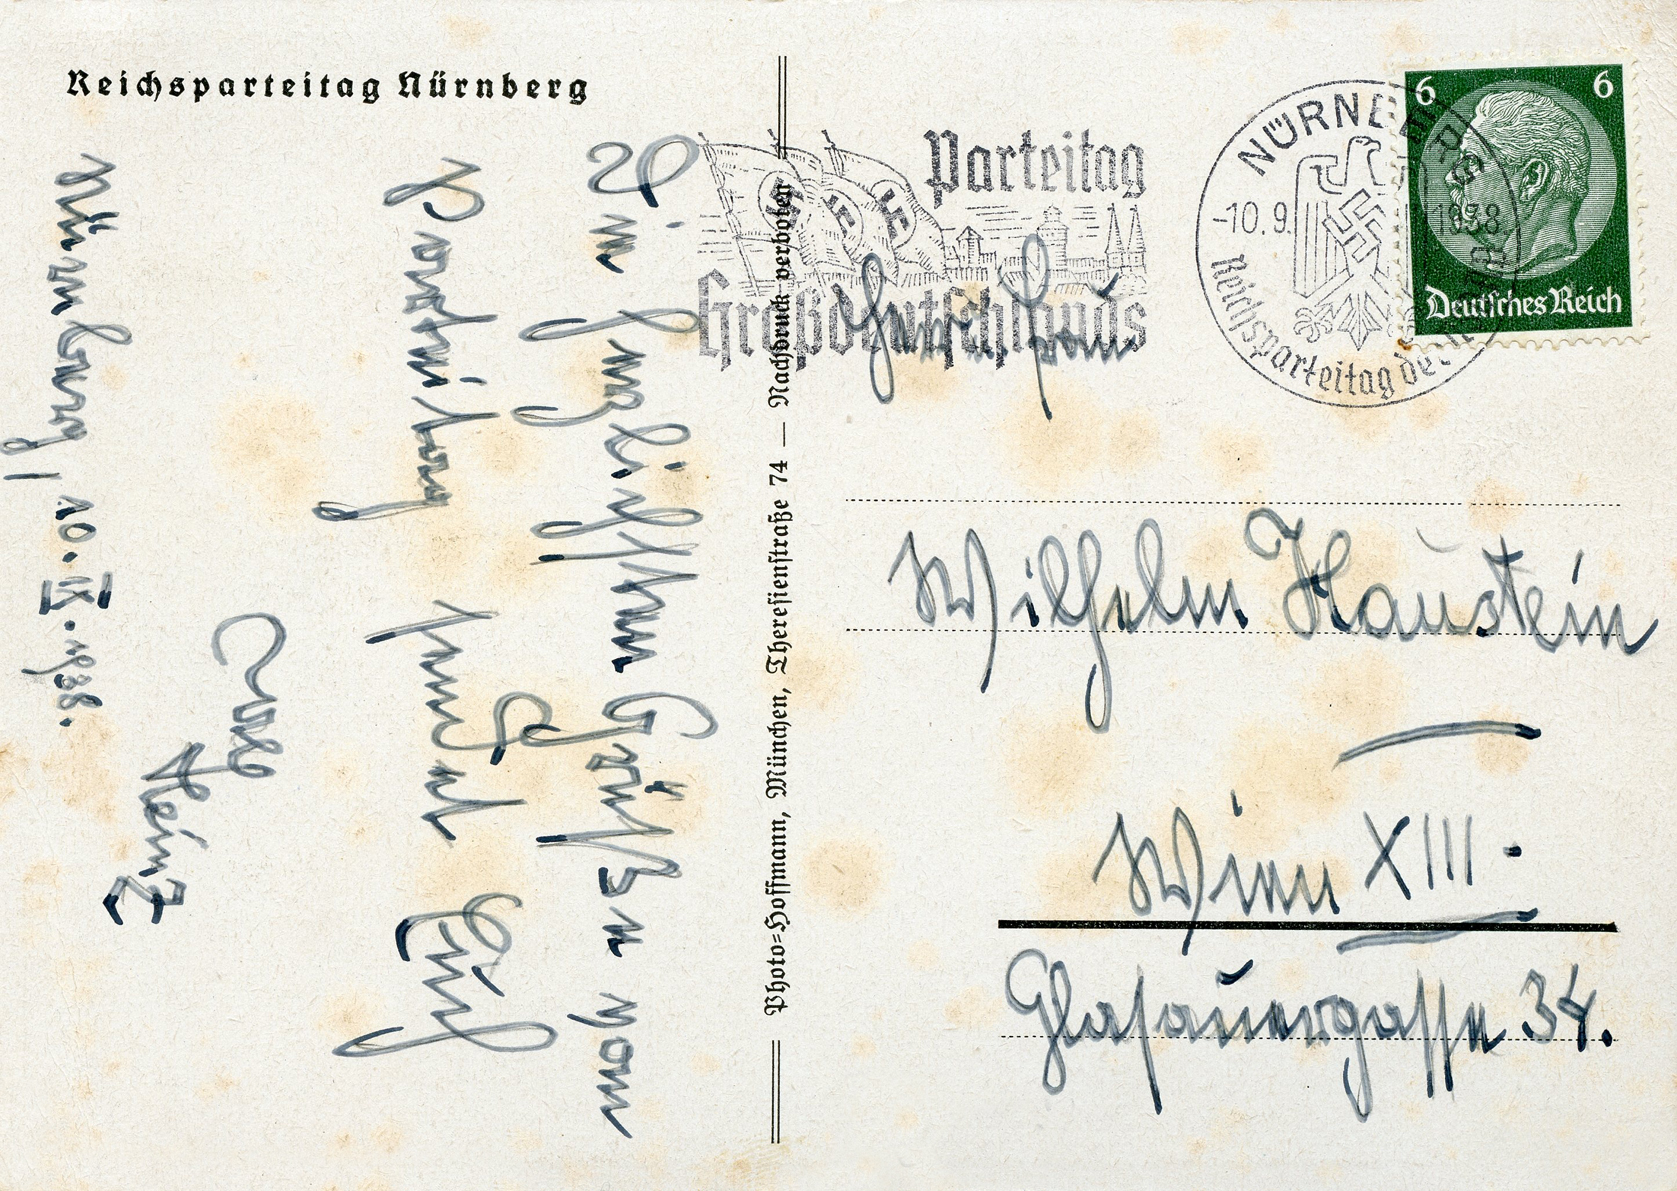 Reichsparteitag Nürnberg
Die herzlichsten Grüße vom
Parteitag sendet Euch
Euer
Heinz
Nürnberg, 10. IX. 1938.
Photo-Hoffmann, München, Theresienstraße 74 — Nachdruck verboten
Parteitag
Großdeutschlands
NÜRNBERG
-10.9. 1938
Reichsparteitag der
6 6
Deutsches Reich
Wilhelm Haustein
Wien XIII.
Glasauergasse 34.